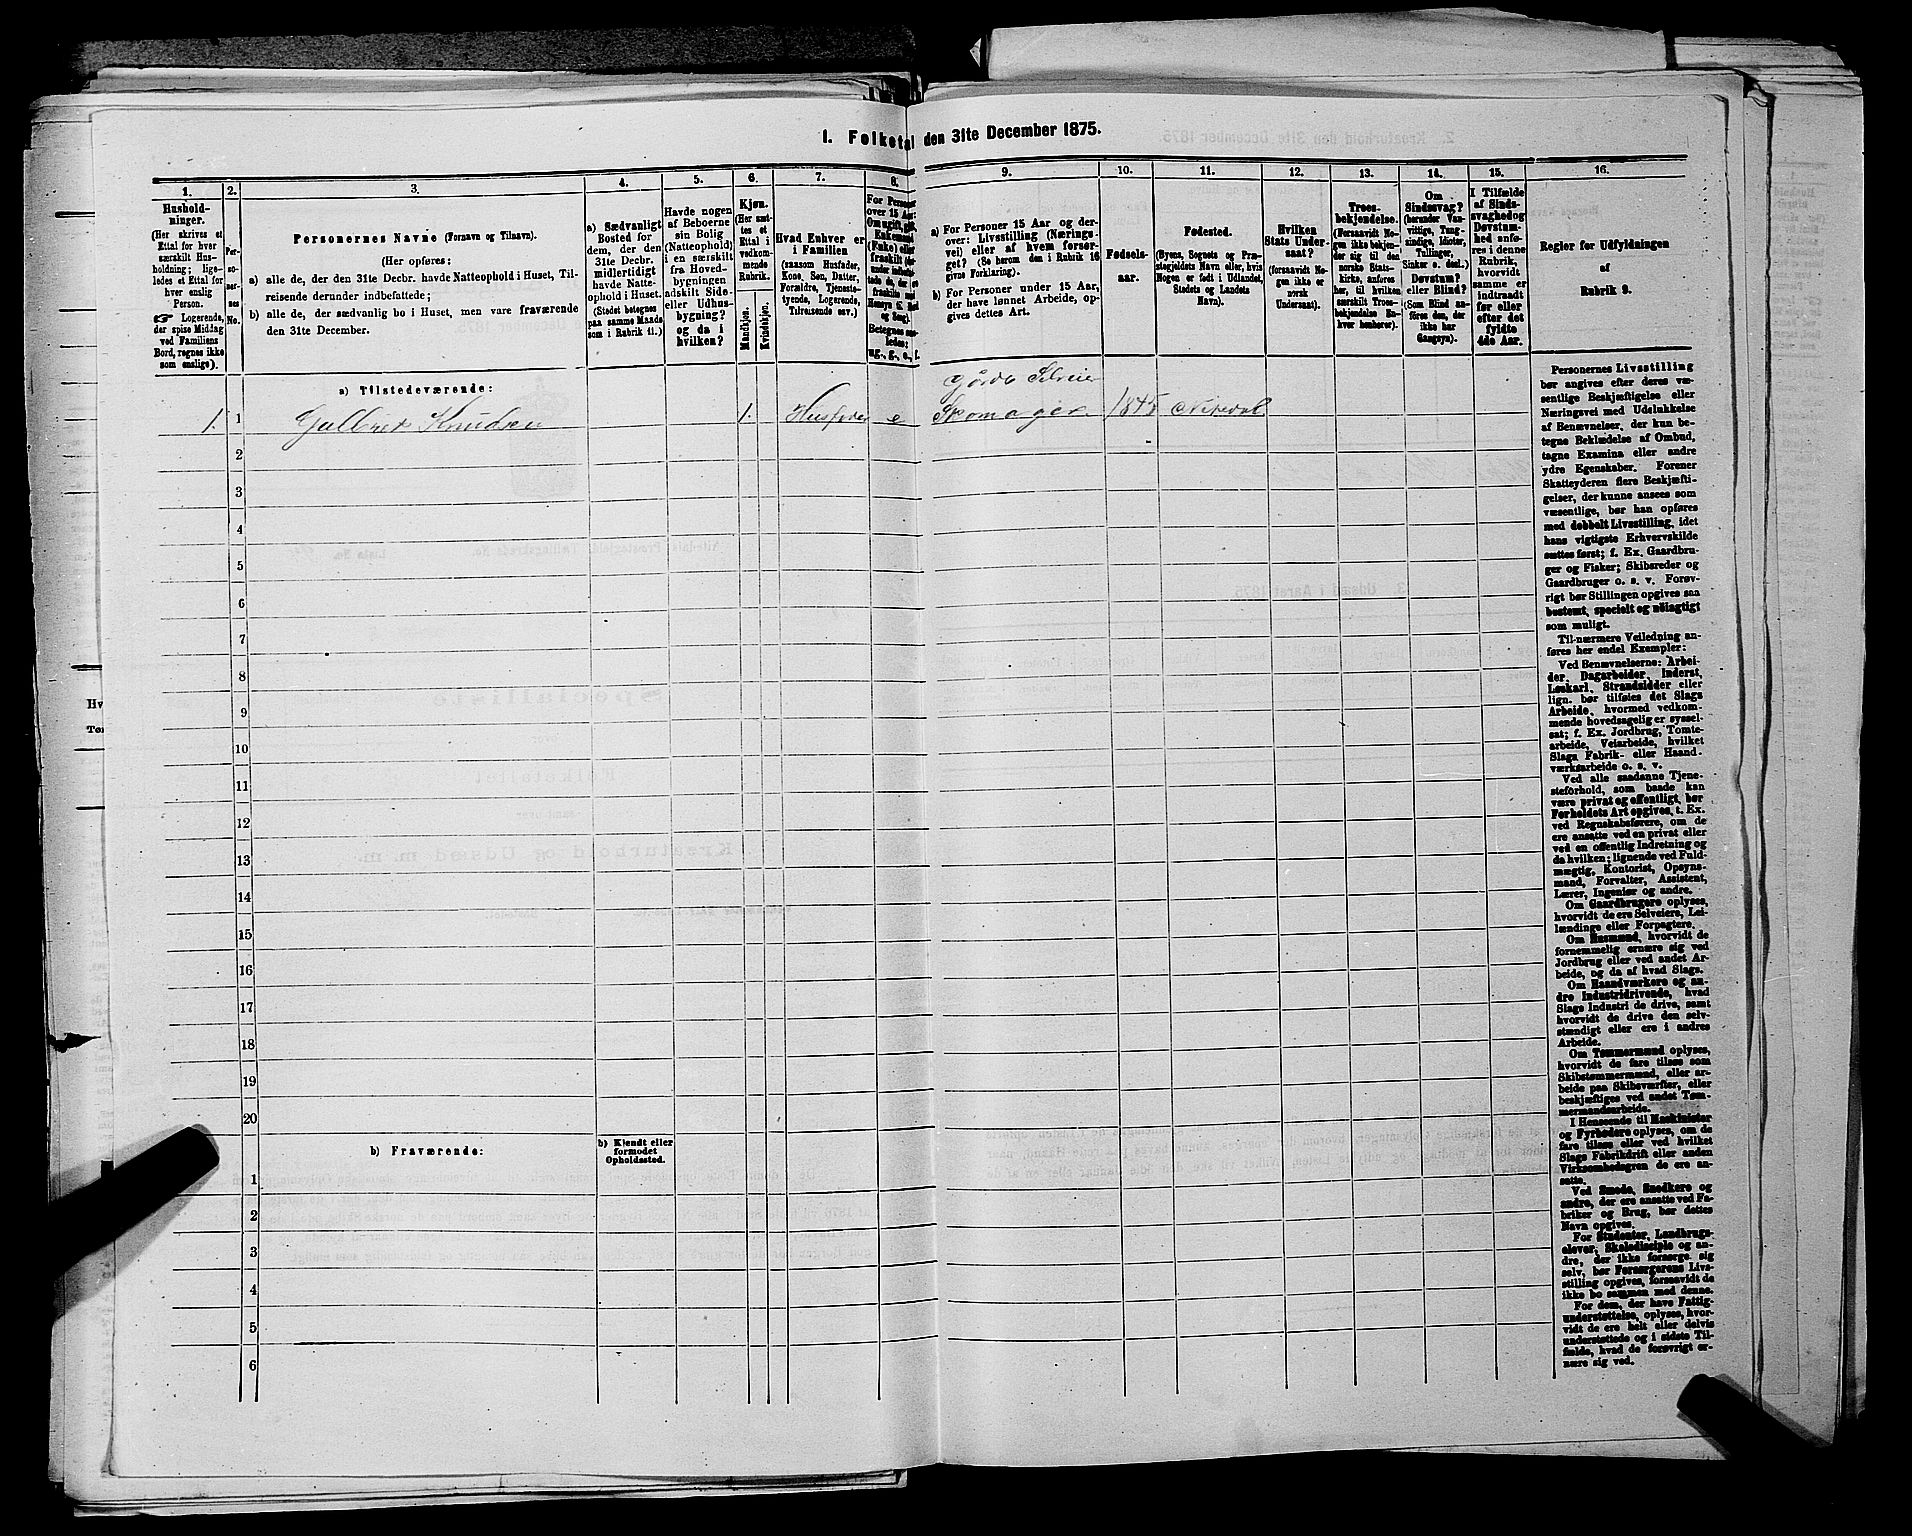 1. Folketal den 31te December 1875.
1. 2. 3. 4. 5. 6. 7. 8. 9. 10. 11. 12. 13. 14. 15. 16.
Hushold-
ninger.
(Her skrives et
Ettal for hver
særskilt Hus-
holdning; lige-
ledes et Ettal for
hver enslig
Person.
☞ Logerende,
der spise Middag
ved Familiens
Bord, regnes ikke
som enslige).
Per-
so-
ner-
nes
No.
Personernes Navne (Fornavn og Tilnavn).
(Her opføres:
a) alle de, der den 31te Decbr. havde Natteophold i Huset, Til-
reisende derunder indbefattede;
b) alle de, der sædvanlig bo i Huset, men vare fraværende
den 31te December.
a) Sædvanligt
Bosted for
dem, der den
31te Decbr.
midlertidigt
havde Natte-
ophold i Huset.
(Stedet betegnes
paa samme Maade
som i Rubrik 11.)
Havde nogen
af Beboerne
sin Bolig
(Natteophold)
i en særskilt
fra Hoved-
bygningen
adskilt Side-
eller Udhus-
bygning?
og da i
hvilken?
Kjøn.
(Her sæt-
tes et
Ettal i
vedkom-
mende
Rubrik.
Mandkjøn.
Kvindekjøn.
Hvad Enhver er
i Familien
(saasom Husfader,
Kone, Søn, Datter,
Forældre, Tjeneste-
tyende, Logerende,
Tilreisende osv.)
For Personer
over 15 Aar:
Om ugift, gift,
Enkemand
(Enke) eller
fraskilt
Betegnes saa-
ledes:
ug., g., e., f.
a) For Personer 15 Aar og der-
over: Livsstilling (Nærings-
vei) eller af hvem forsør-
get? (Se herom den i Rubrik 16
givne Forklaring).
b) For Personer under 15 Aar,
der have lønnet Arbeide, op-
gives dettes Art.
Fødsels-
aar.
Fødested.
(Byens, Sognets og Præ-
stegjeldets Navn eller, hvis
Nogen er født i Udlandet,
Stedets og Landets
Navn).
Hvilken
Stats Under-
saat?
(forsaavidt No-
gen ikke er
norsk
Undersaat).
Troes-
bekjendelse.
(Forsaavidt No-
gen ikke bekjen-
der sig til den
norske Stats-
kirke, anføres
her, til hvilken
særskilt Troes-
bekjendelse En-
hver henhører).
Om
Sindssvag?
(herunder Van-
vittige, Tung-
sindige, Idioter,
Tullinger,
Sinker o. desl.)
Døvstum?
eller Blind?
(Som Blind an-
føres den, der
ikke har
Gangsyn).
I Tilfælde
af Sinds-
svaghed og
Døvstum-
hed anfø-
res i denne
Rubrik,
hvorvidt
samme er
indtraadt
før eller
efter det
fyldte
4de Aar.
Regler for Udfyldningen
af
Rubrik 9.
a) Tilstedeværende:
1. 1 Gulbrer Knudsen 1. Husfader e Gårdb Selveier
Skomager 1845 Nitedal
2
3
4
5
6
7
8
9
10
11
12
13
14
15
16
17
18
19
20
b) Fraværende:
b) Kjendt eller
formodet
Opholdssted.
1
2
3
4
5
6
Personernes Livsstilling
bør angives efter deres væ-
sentlige Beskjæftigelse eller
Næringsvei med Udelukkelse
af Benævnelser, der kun be-
tegne Beklædelse af Ombud,
tagne Examina eller andre
ydre Egenskaber. Forener
Skatteyderen flere Beskjæfti-
gelser, der kunne ansees som
væsentlige, bør han opføres
med dobbelt Livsstilling, idet
hans vigtigste Erhvervskilde
sættes først; f. Ex. Gaardbru-
ger og Fisker; Skibsreder og
Gaardbruger o. s. v. Forøv-
rigt bør Stillingen opgives saa
bestemt, specielt og nøiagtigt
som muligt.
Til nærmere Veiledning an-
føres her endel Exempler:
Ved Benævnelserne: Arbei-
der, Dagarbeider, Inderst,
Løskarl, Strandsidder eller
lign. bør tilføies det Slags
Arbeide, hvormed vedkom-
mende hovedsagelig er syssel-
sat; f. Ex. Jordbrug, Tomte-
arbeide, Veiarbeide, hvilket
Slags Fabrik- eller Haand-
værksarbeide o. s. v.
Ved alle saadanne Tjene-
steforhold, som baade kan
være privat og offentligt, bør
Forholdets Art opgives, t. Ex.
ved Regnskabsførere, om de
ere ansatte ved en privat eller
ved en offentlig Indretning og
da hvilken; lignende ved Fuld-
mægtig, Kontorist, Opsyns-
mand, Forvalter, Assistent,
Lærer, Ingeniør og andre.
Om Gaardbrugere oplyses,
hvorvidt de ere Selveiere, Lei-
lændinge eller Forpagtere.
Om Husmænd, hvorvidt de
fornemmelig ernære sig ved
Jordbrug eller ved andet Ar-
beide, og da af hvad Slags.
Om Haandværkere og an-
dre Industridrivende, hvad
Slags Industri de drive, samt
hvorvidt de drive den selv-
stændigt eller ere i andres
Arbeide.
Om Tømmermænd oplyses,
hvorvidt de fare tilsøs som
Skibstømmermænd, eller ar-
beide paa Skibsværfter, eller
beskjæftiges ved andet Tøm-
mermandsarbeide.
I Henseende til Maskinister
og Fyrbødere oplyses, om de
fare tilsøs eller ved hvilket
Slags Fabrikdrift eller anden
Virksomhedsgren de ere an-
satte.
Ved Smede, Snedkere og
andre, der ere ansatte ved Fa-
briker og Brug, bør dettes
Navn opgives.
For Studenter, Landbrugs-
elever, Skoledisciple og an-
dre, der ikke forsørge sig
selv, bør Forsørgerens Livs-
stilling opgives, forsaavidt de
ikke bo sammen med denne.
For dem, der have Fattig-
understøttelse, oplyses, hvor-
vidt de ere helt eller delvis
understøttede og i sidste Til-
fælde, hvad de forøvrigt er-
nære sig ved.